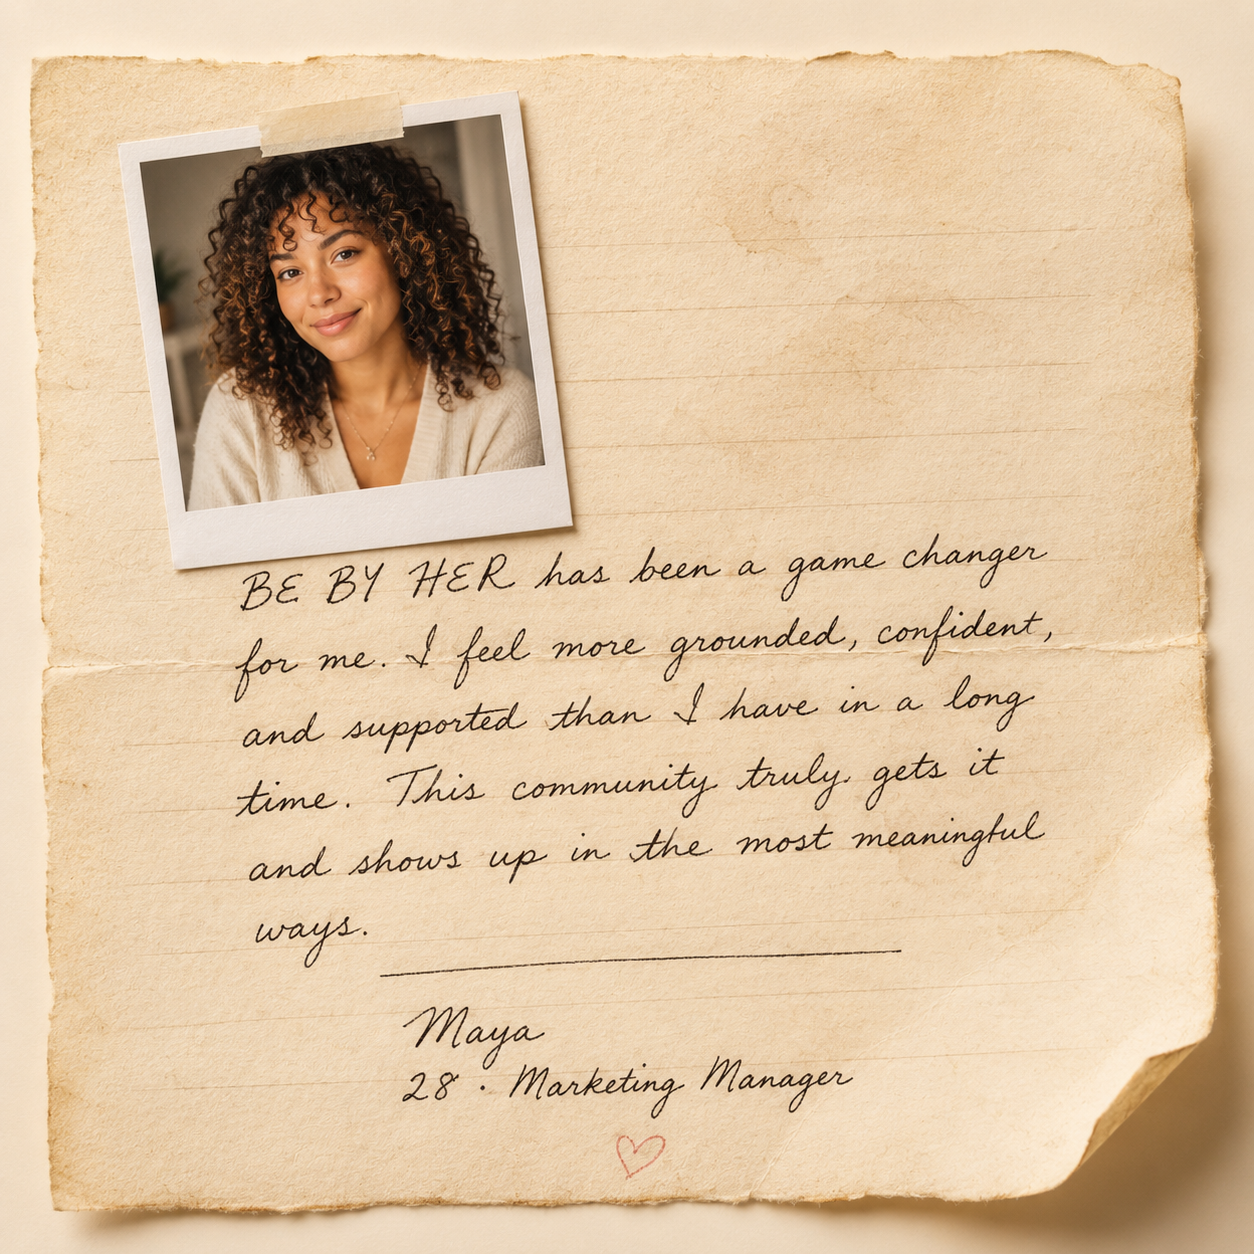 BE BY HER has been a game changer
for me. I feel more grounded, confident,
and supported than I have in a long
time. This community truly gets it
and shows up in the most meaningful
ways.
Maya
28 · Marketing Manager